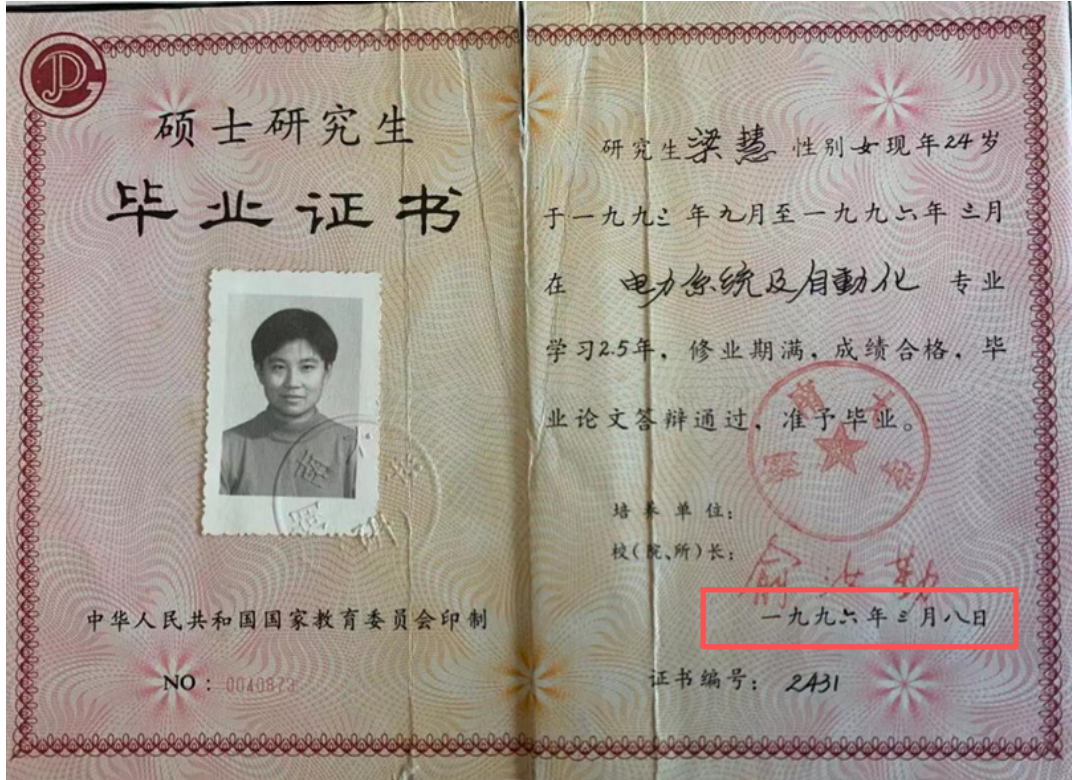 硕士研究生
毕业证书
中华人民共和国国家教育委员会印制
NO：0040873
研究生梁慧 性别女现年24岁
于一九九三年九月至一九九六年三月
在 电力系统及自動化 专业
学习2.5年，修业期满，成绩合格，毕
业论文答辩通过，准予毕业。
培养单位：
校(院、所)长：
一九九六年三月八日
证书编号：2431